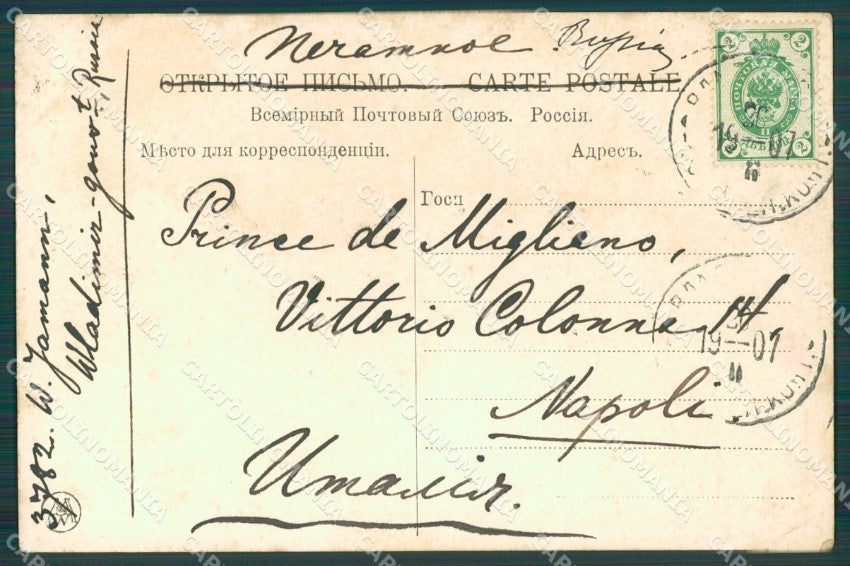 Печатное Russia
ОТКРЫТОЕ ПИСЬМО. CARTE POSTALE
Всемірный Почтовый Союзъ. Россія.
Мѣсто для корреспонденціи. Адресъ.
Госп
Prince de Miglieno,
Vittorio Colonna 14
Napoli
Италія.
3782. W. Jamann,
Wladimir-gouv-t, Russia
2 2
ПОЧТОВАЯ МАРКА
2 2
19 07
19 07
CARTOLINOMANIA